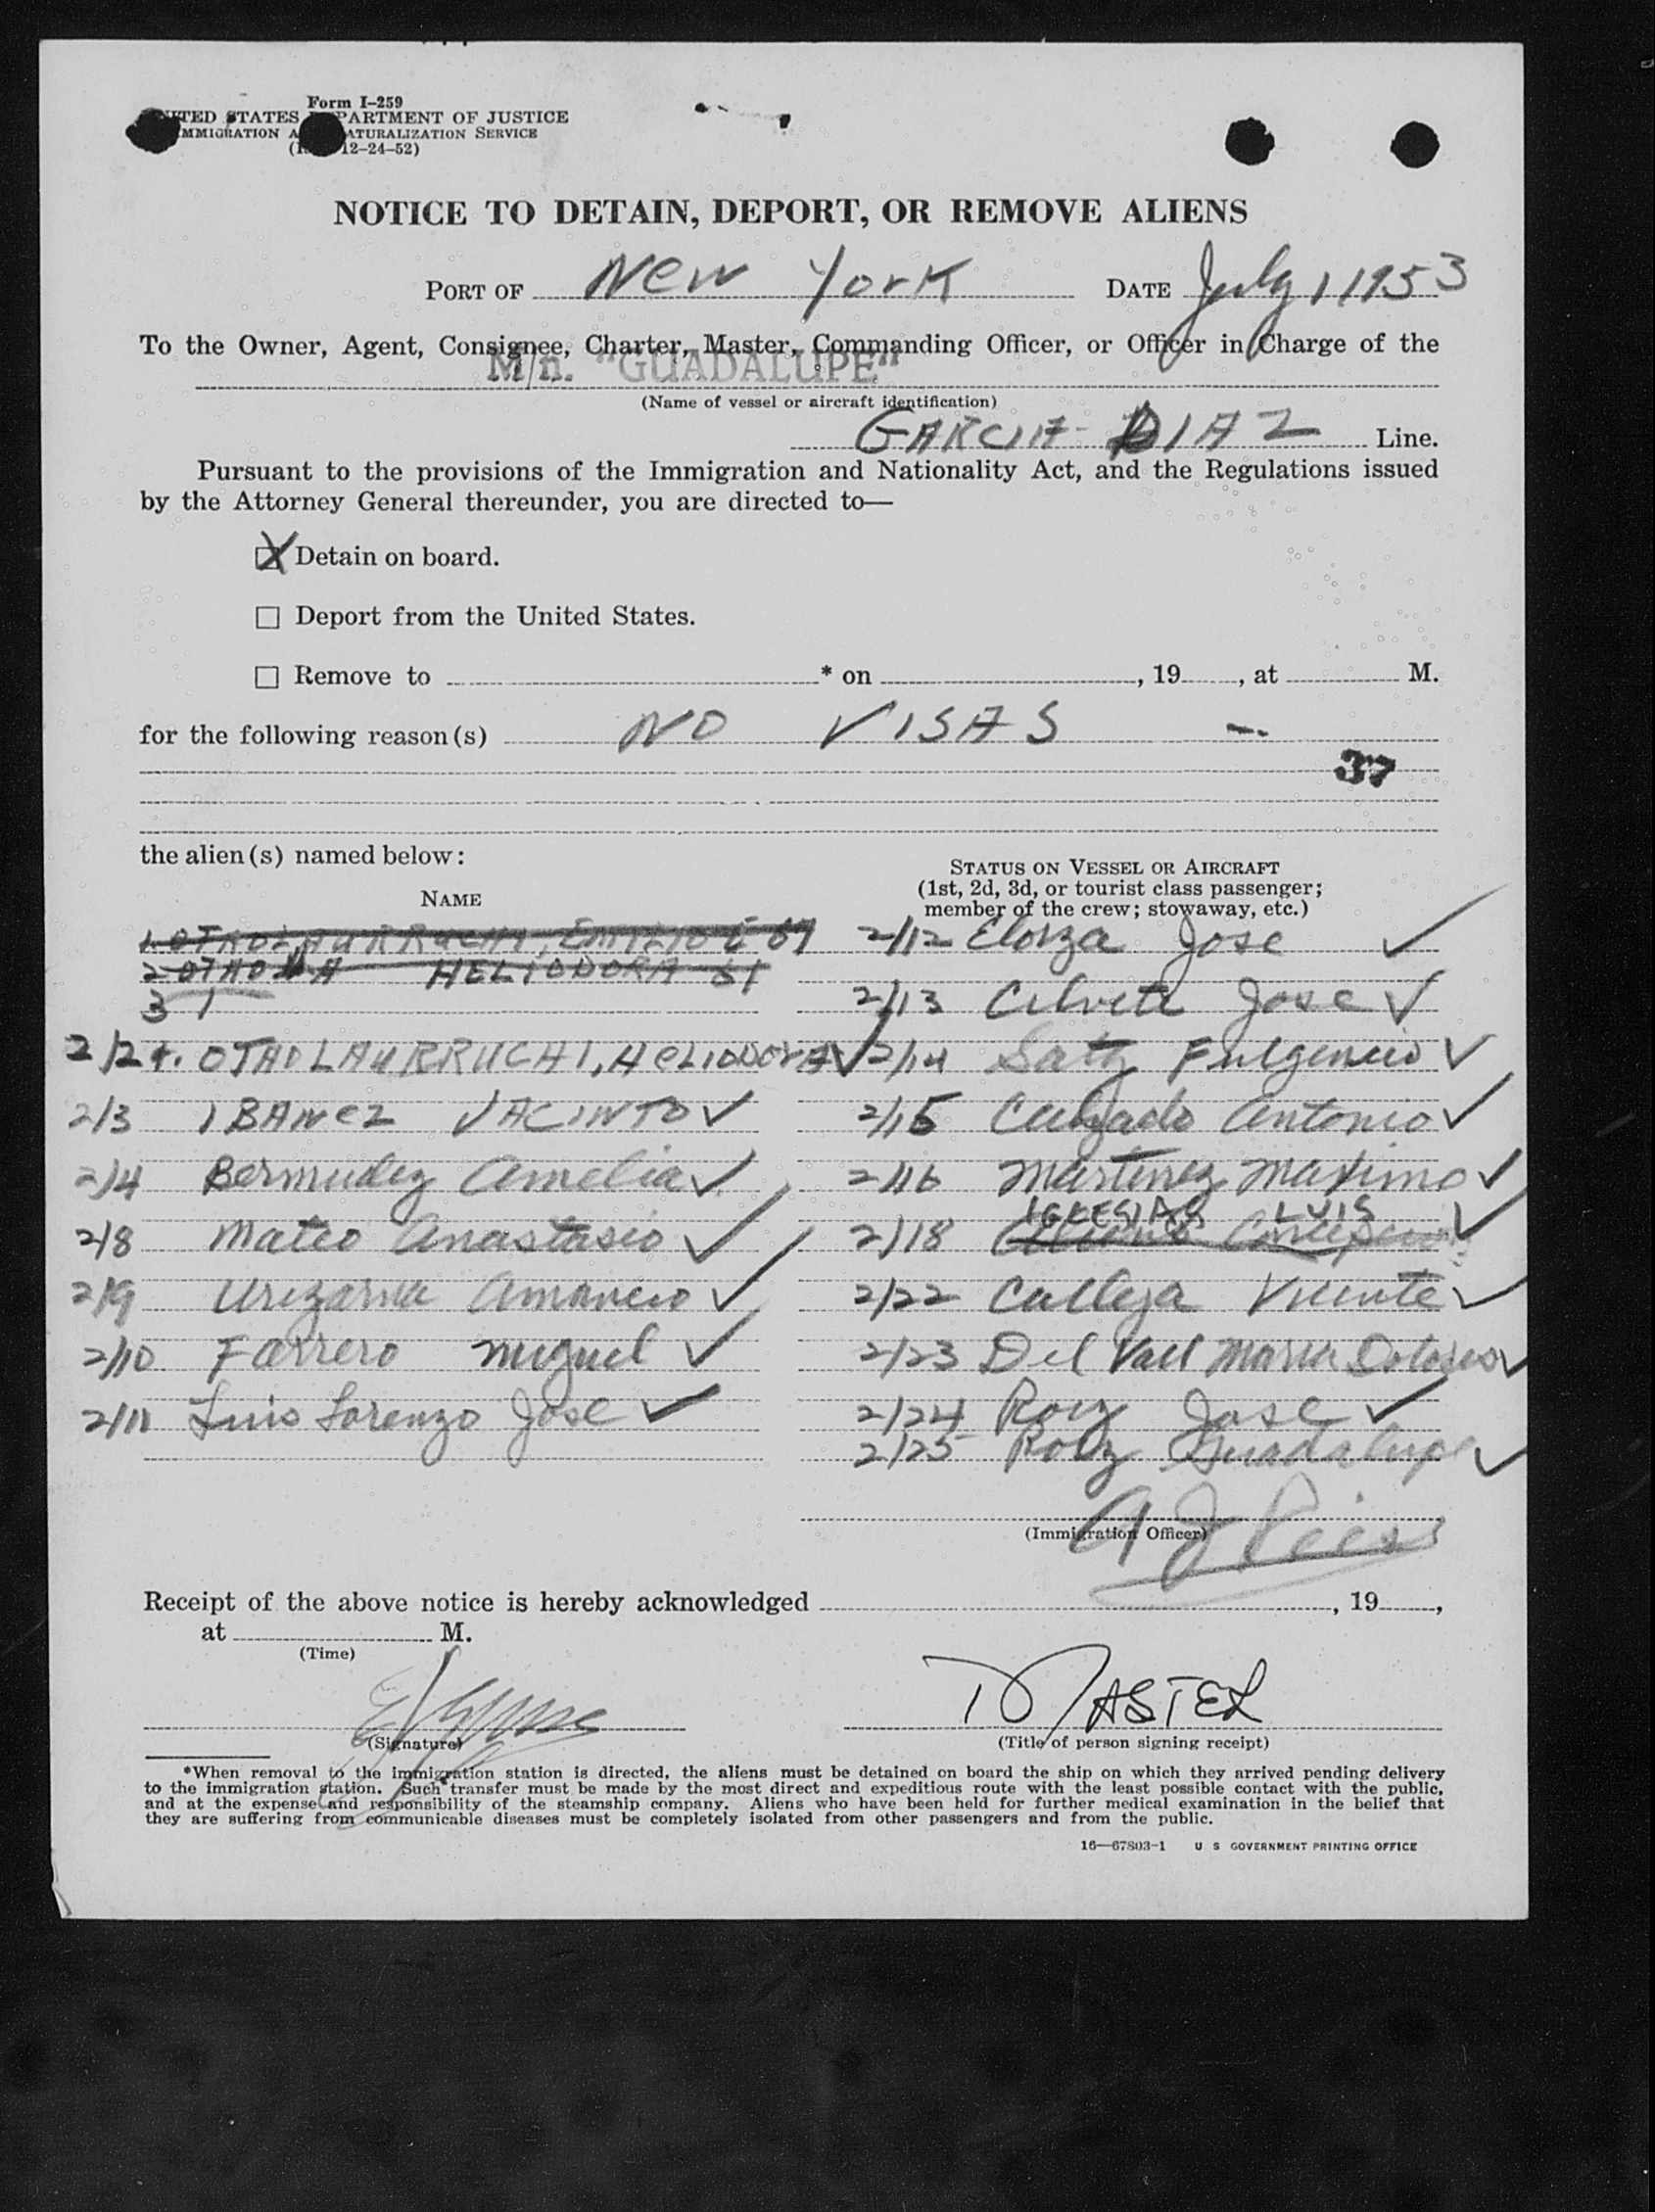 Form I-259
UNITED STATES DEPARTMENT OF JUSTICE
IMMIGRATION AND NATURALIZATION SERVICE
12-24-52)
NOTICE TO DETAIN, DEPORT, OR REMOVE ALIENS
PORT OF New York DATE July 1 1953
To the Owner, Agent, Consignee, Charter, Master, Commanding Officer, or Officer in Charge of the
M/n. "GUADALUPE"
(Name of vessel or aircraft identification)
GARCIA DIAZ Line.
Pursuant to the provisions of the Immigration and Nationality Act, and the Regulations issued
by the Attorney General thereunder, you are directed to—
X Detain on board.
☐ Deport from the United States.
☐ Remove to * on , 19 , at M.
for the following reason(s) NO VISAS -.
37
the alien(s) named below:
NAME
STATUS ON VESSEL OR AIRCRAFT
(1st, 2d, 3d, or tourist class passenger;
member of the crew; stowaway, etc.)
HELIODORA
3 1
2/2 OTAOLAURRUCHI, HELIODORA ✓
2/3 IBANEZ JACINTO ✓
2/4 Bermudez Amelia ✓
2/8 Mateo Anastasio ✓
2/9 Amancio ✓
2/10 Farrero Miguel ✓
2/11 Luis Lorenzo Jose ✓
2/12 Elorza Jose ✓
2/13 Jose ✓
2/14 Fulgencio ✓
2/15 Antonio ✓
2/16 Martinez Maximo ✓
2/18 IGLESIAS LUIS ✓
2/22 Calleja Vicente ✓
2/23 Del Vall Maria Dolores ✓
2/24 Roiz Jose ✓
2/25 Roiz Guadalupe ✓
(Immigration Officer)
Receipt of the above notice is hereby acknowledged , 19 ,
at M.
(Time)
MASTER
(Signature)
(Title of person signing receipt)
*When removal to the immigration station is directed, the aliens must be detained on board the ship on which they arrived pending delivery
to the immigration station. Such transfer must be made by the most direct and expeditious route with the least possible contact with the public,
and at the expense and responsibility of the steamship company. Aliens who have been held for further medical examination in the belief that
they are suffering from communicable diseases must be completely isolated from other passengers and from the public.
16—67803-1 U S GOVERNMENT PRINTING OFFICE